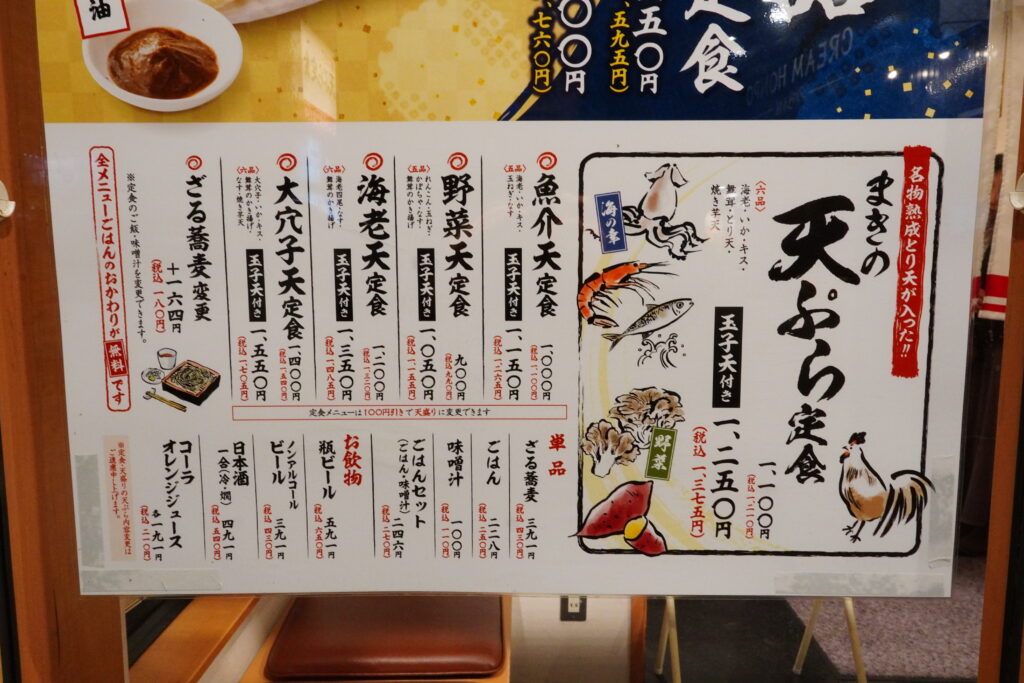 油
定食
五〇円
、五九五円）
〇〇円
、七六〇円）
CREAM
名物熟成とり天が入った!!
まきの
天ぷら定食
一、一〇〇円
（税込 一、二一〇円）
玉子天付き
一、二五〇円
（税込 一、三七五円）
〈六品〉
海老・いか・キス・
舞茸・とり天・
焼き芋天
海の幸
野菜
魚介天定食
一、〇〇〇円
（税込 一、一〇〇円）
〈五品〉
海老・いか・キス・
玉ねぎ・なす
玉子天付き
一、一五〇円
（税込 一、二六五円）
野菜天定食
九〇〇円
（税込 九九〇円）
〈五品〉
れんこん・玉ねぎ・
かぼちゃ・なす・
舞茸のかき揚げ
玉子天付き
一、〇五〇円
（税込 一、一五五円）
海老天定食
一、二〇〇円
（税込 一、三二〇円）
〈六品〉
海老四尾・なす・
舞茸のかき揚げ
玉子天付き
一、三五〇円
（税込 一、四八五円）
大穴子天定食
一、四〇〇円
（税込 一、五四〇円）
〈六品〉
大穴子・いか・キス・
舞茸のかき揚げ・
なす・焼き芋天
玉子天付き
一、五五〇円
（税込 一、七〇五円）
ざる蕎麦変更
＋一六四円
（税込 一八〇円）
※定食のご飯・味噌汁を変更できます。
全メニューごはんのおかわりが無料です
定食メニューは100円引きで天盛りに変更できます
単品
ざる蕎麦
三九一円
（税込 四三〇円）
ごはん
二二八円
（税込 二五〇円）
味噌汁
一〇〇円
（税込 一一〇円）
ごはんセット
（ごはん・味噌汁）
二四六円
（税込 二七〇円）
お飲物
瓶ビール
五九一円
（税込 六五〇円）
ノンアルコール
ビール
三九一円
（税込 四三〇円）
日本酒
一合（冷・燗）
四九一円
（税込 五四〇円）
コーラ
オレンジジュース
各一九一円
（税込 二一〇円）
※定食・天盛りの天ぷら内容変更は
ご遠慮申し上げます。